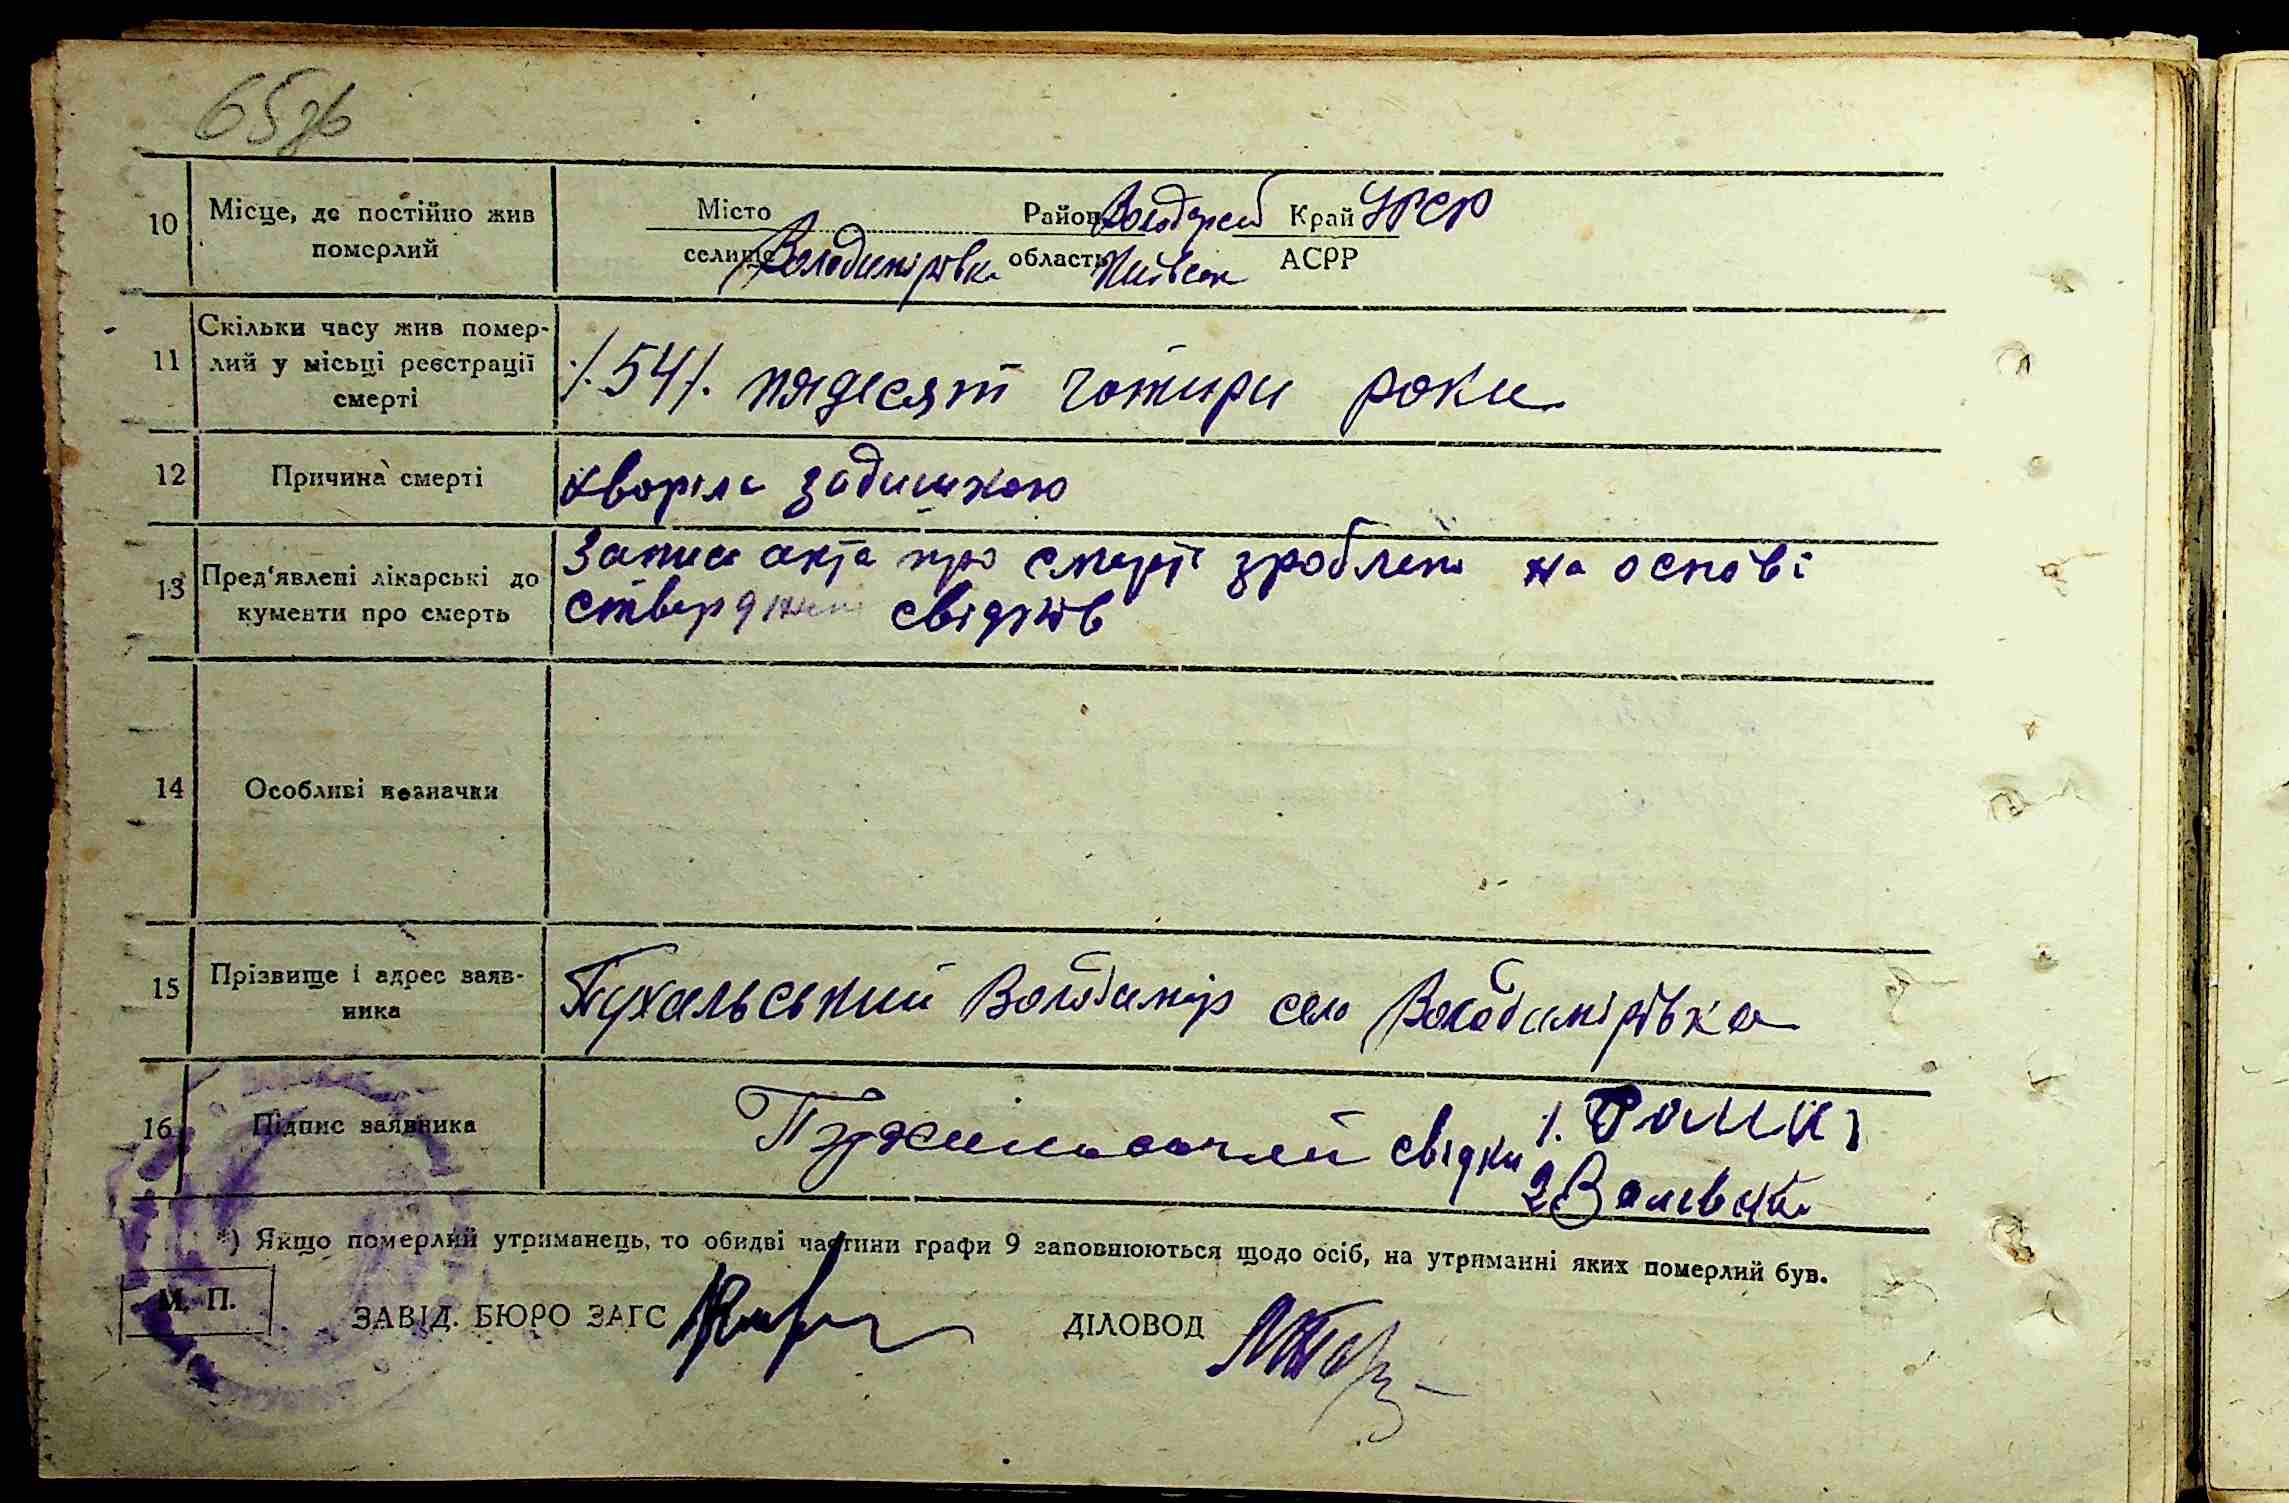 65зв
10 Місце, де постійно жив померлий
Місто Район Володарськ Край УРСР
селище Володимирівка область Київськ АСРР
11 Скільки часу жив помер-
лий у місьці реєстрації
смерті
/.54/. пядесят чотири роки
12 Причина смерті
хворіла задишкою
13 Пред'явлені лікарські до
кументи про смерть
Запис акта про смерть зроблено на основі
свідків
14 Особливі незначки
15 Прізвище і адрес заяв-
ника
Пухальський Володимир село Володимирівка
16 Підпис заявника
свідки 1.
2
*) Якщо померлий утриманець, то обидві частини графи 9 заповнюються щодо осіб, на утриманні яких померлий був.
М. П.
ЗАВІД. БЮРО ЗАГС ДІЛОВОД